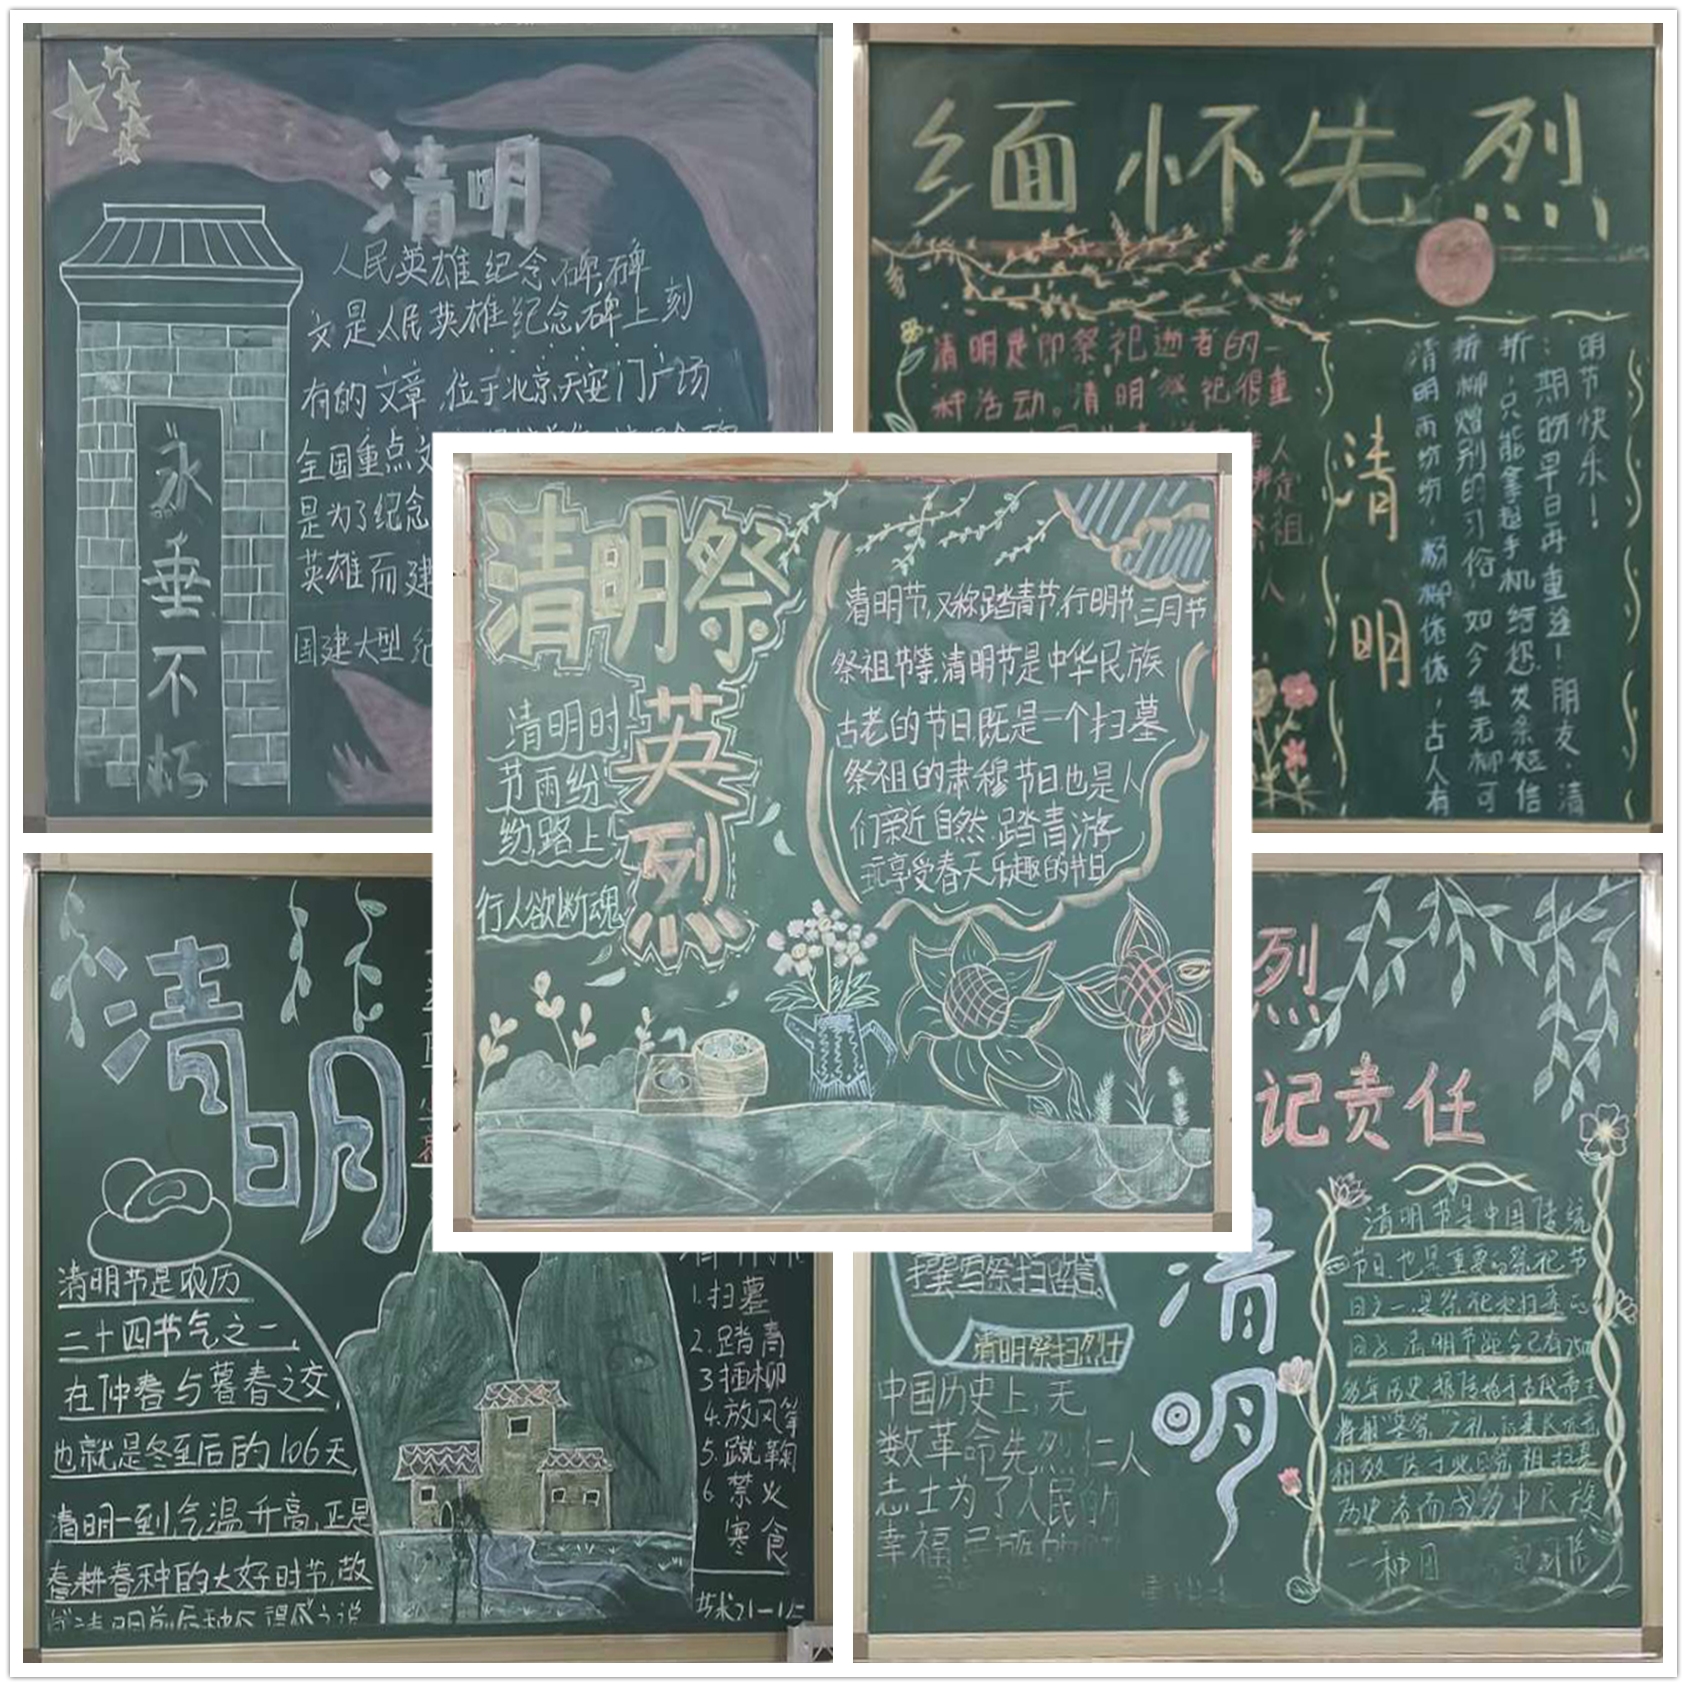 清明
人民英雄纪念碑,碑
文是人民英雄纪念碑上刻
有的文章,位于北京天安门广场
全国重点文
是为了纪念
英雄而建
国建大型纪
永垂不朽
缅怀先烈
清明是即祭祀逝者的一
种活动。清明祭祀很重
人
定
祖
人
清明
明节快乐!
:期盼早日再重逢!朋友,清
折,只能拿起手机给您发条短信
折柳赠别的习俗,如今我无柳可
清明雨纷纷,杨柳依依,古人有
清明祭
英烈
清明时
节雨纷
纷,路上
行人欲断魂
清明节,又称踏青节,行明节,三月节
祭祖节等,清明节是中华民族
古老的节日,既是一个扫墓
祭祖的肃穆节日,也是人
们亲近自然,踏青游
玩享受春天乐趣的节日
清明
清明节是农历
二十四节气之一,
在仲春与暮春之交,
也就是冬至后的106天,
清明一到,气温升高,正是
春耕春种的大好时节,故
1.扫墓
2.踏青
3插柳
4.放风筝
5.蹴鞠
6 禁火
寒食
烈
记责任
清明
撰写祭扫留言。
清明祭扫烈士
中国历史上,无
数革命先烈仁人
志士为了人民的
幸福民族的
清明节是中国传统
节日,也是重要的祭祀节
日之一,是祭祀和扫墓的
日子,清明节距今已有2500